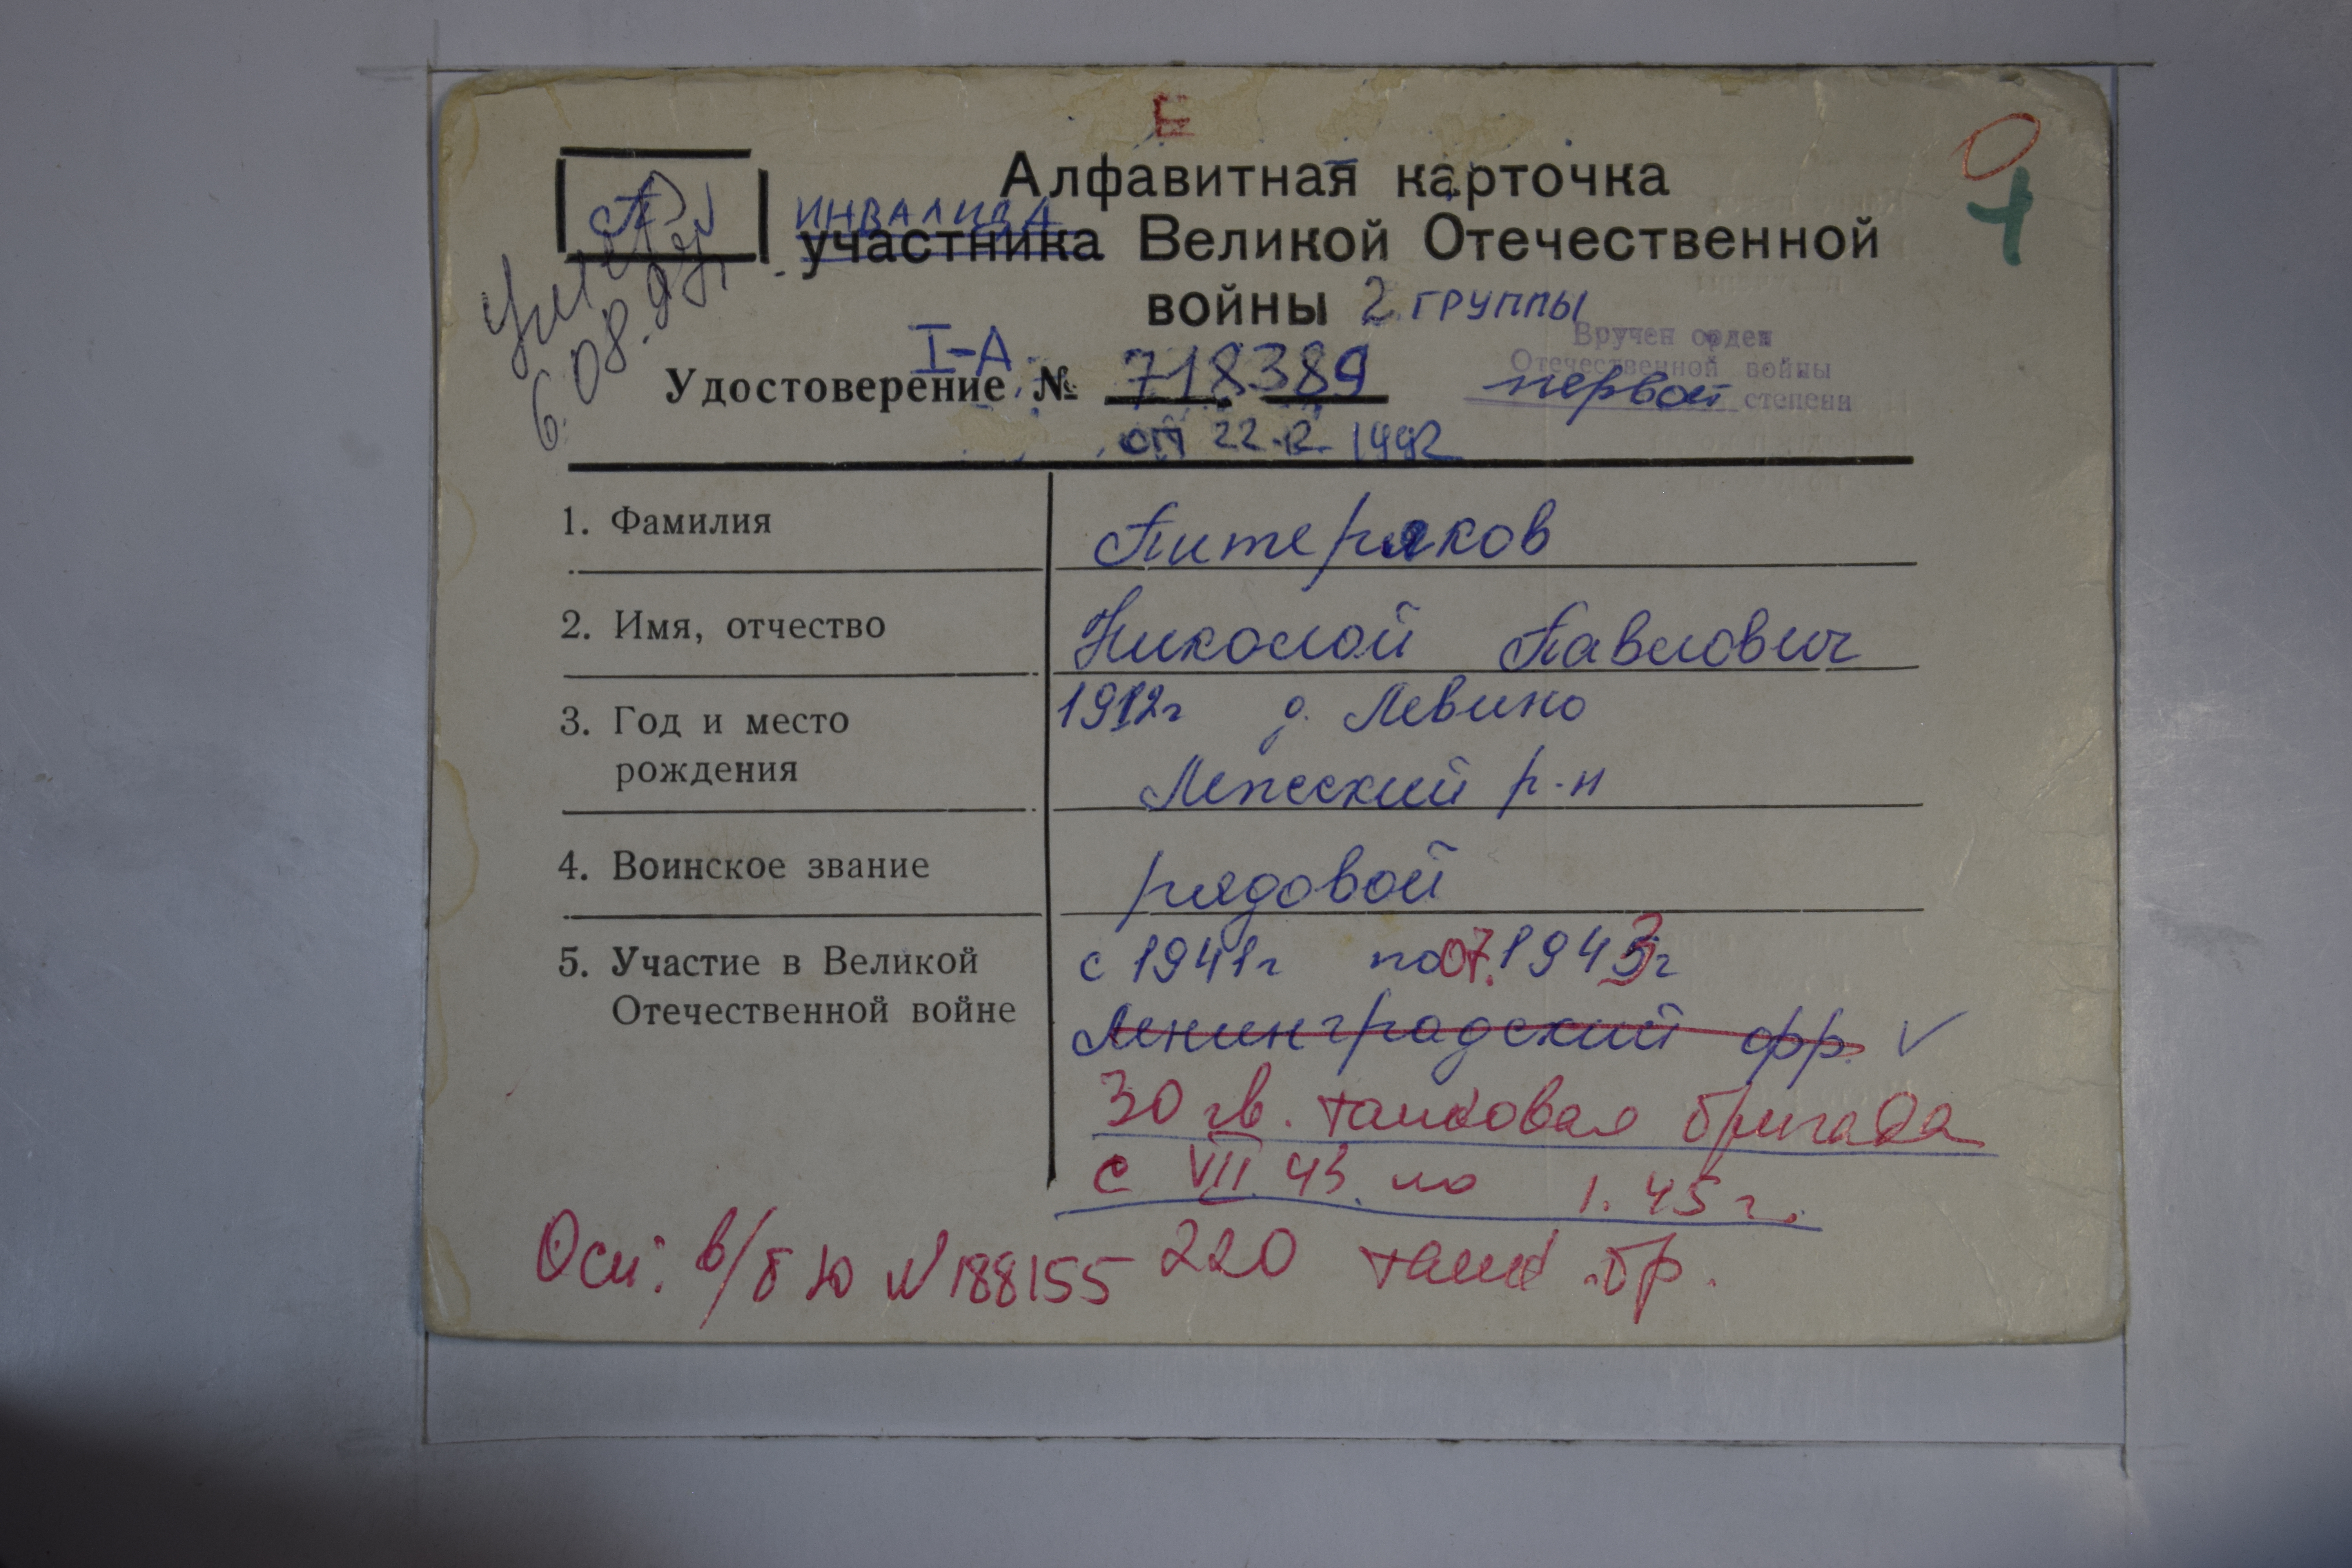 Е
Алфавитная карточка
П
ИНВАЛИДА
участника Великой Отечественной
войны 2 ГРУППЫ
Умер
6.08.97г.
Вручен орден
Отечественной войны
первой степени
I-А
Удостоверение № 718389
от 22.12.1992
1. Фамилия Питеряков
2. Имя, отчество Николай Павлович
3. Год и место 1912г д. Левино
рождения Мпсский р-н
4. Воинское звание рядовой
5. Участие в Великой с 1941г по 07.1943г
Отечественной войне Ленинградский фр.
30 гв. танковая бригада
с VII.43. по 1.45г.
Осн: в/б Ю №188155 220 танк .бр.